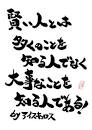 賢い人とは
多くのことを
知る人でなく
大事なことを
知る人である!
by アイスキュロス